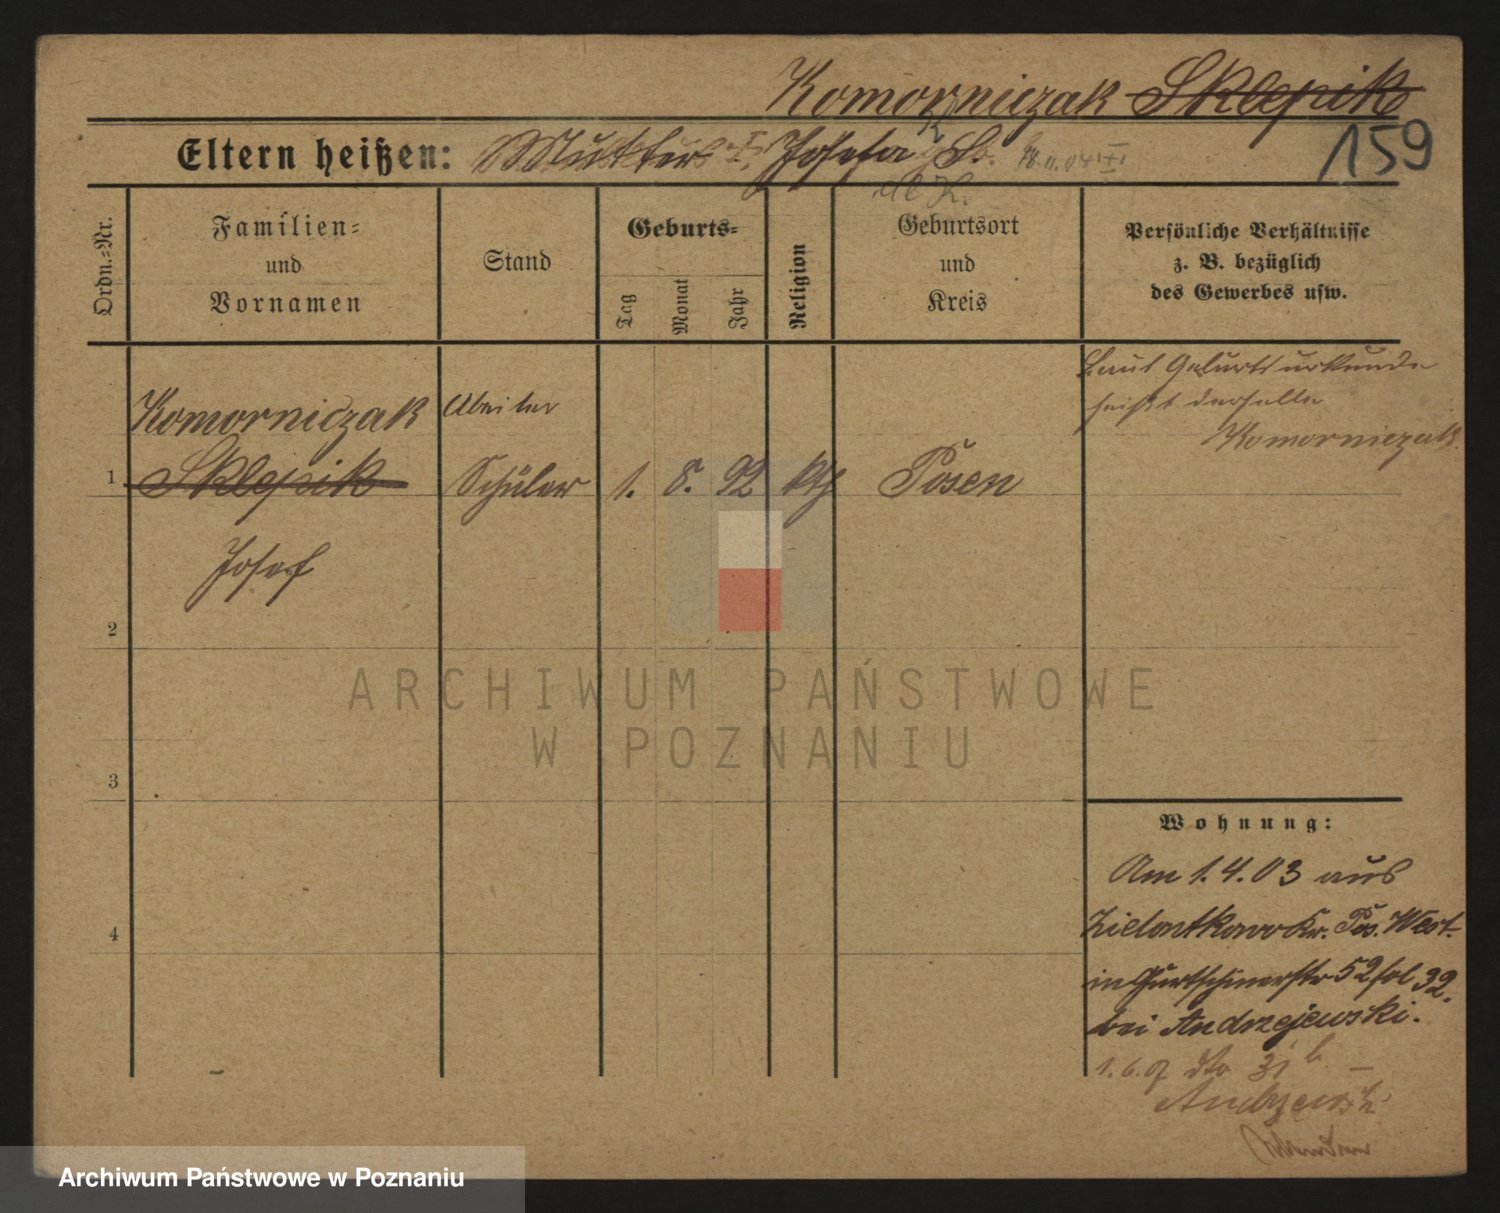 Komorniczak Sklepik
159
Eltern heißen: Mutter Josefa
Ordn.-Nr.
Familien-
und
Vornamen
Stand
Geburts-
Tag
Monat
Jahr
Religion
Geburtsort
und
Kreis
Persönliche Verhältnisse
z. B. bezüglich
des Gewerbes usw.
Laut Geburtsurkunde
heißt derselbe
Komorniczak
Komorniczak Arbeiter
1 Sklepik Schüler 1. 8. 92 kth Posen
Josef
2
3
4
ARCHIWUM PAŃSTWOWE
W POZNANIU
Wohnung:
Am 1.4.03 aus
Zielontkowo Kr. Pos. West.
in Gurtschinerstr 52 fol 32.
bei Andrzejewski.
1.6.07 dto 31
Archiwum Państwowe w Poznaniu